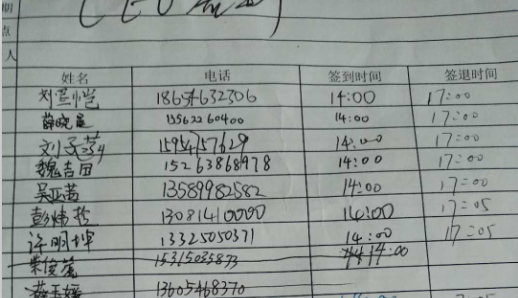 期
点
人
姓名 电话 签到时间 签退时间
18654632306 14:00 17:00
薛晓星 15562260400 14:00 17:00
15954757629 14:00 17:00
魏吉田 15263868978 14:00 17:00
吴亚茜 13589982582 14:00 17:00
彭炜哲 13081410000 14:00 17:05
许明坤 13325050371 14:00 17:05
15315035873 14:00
13605468370